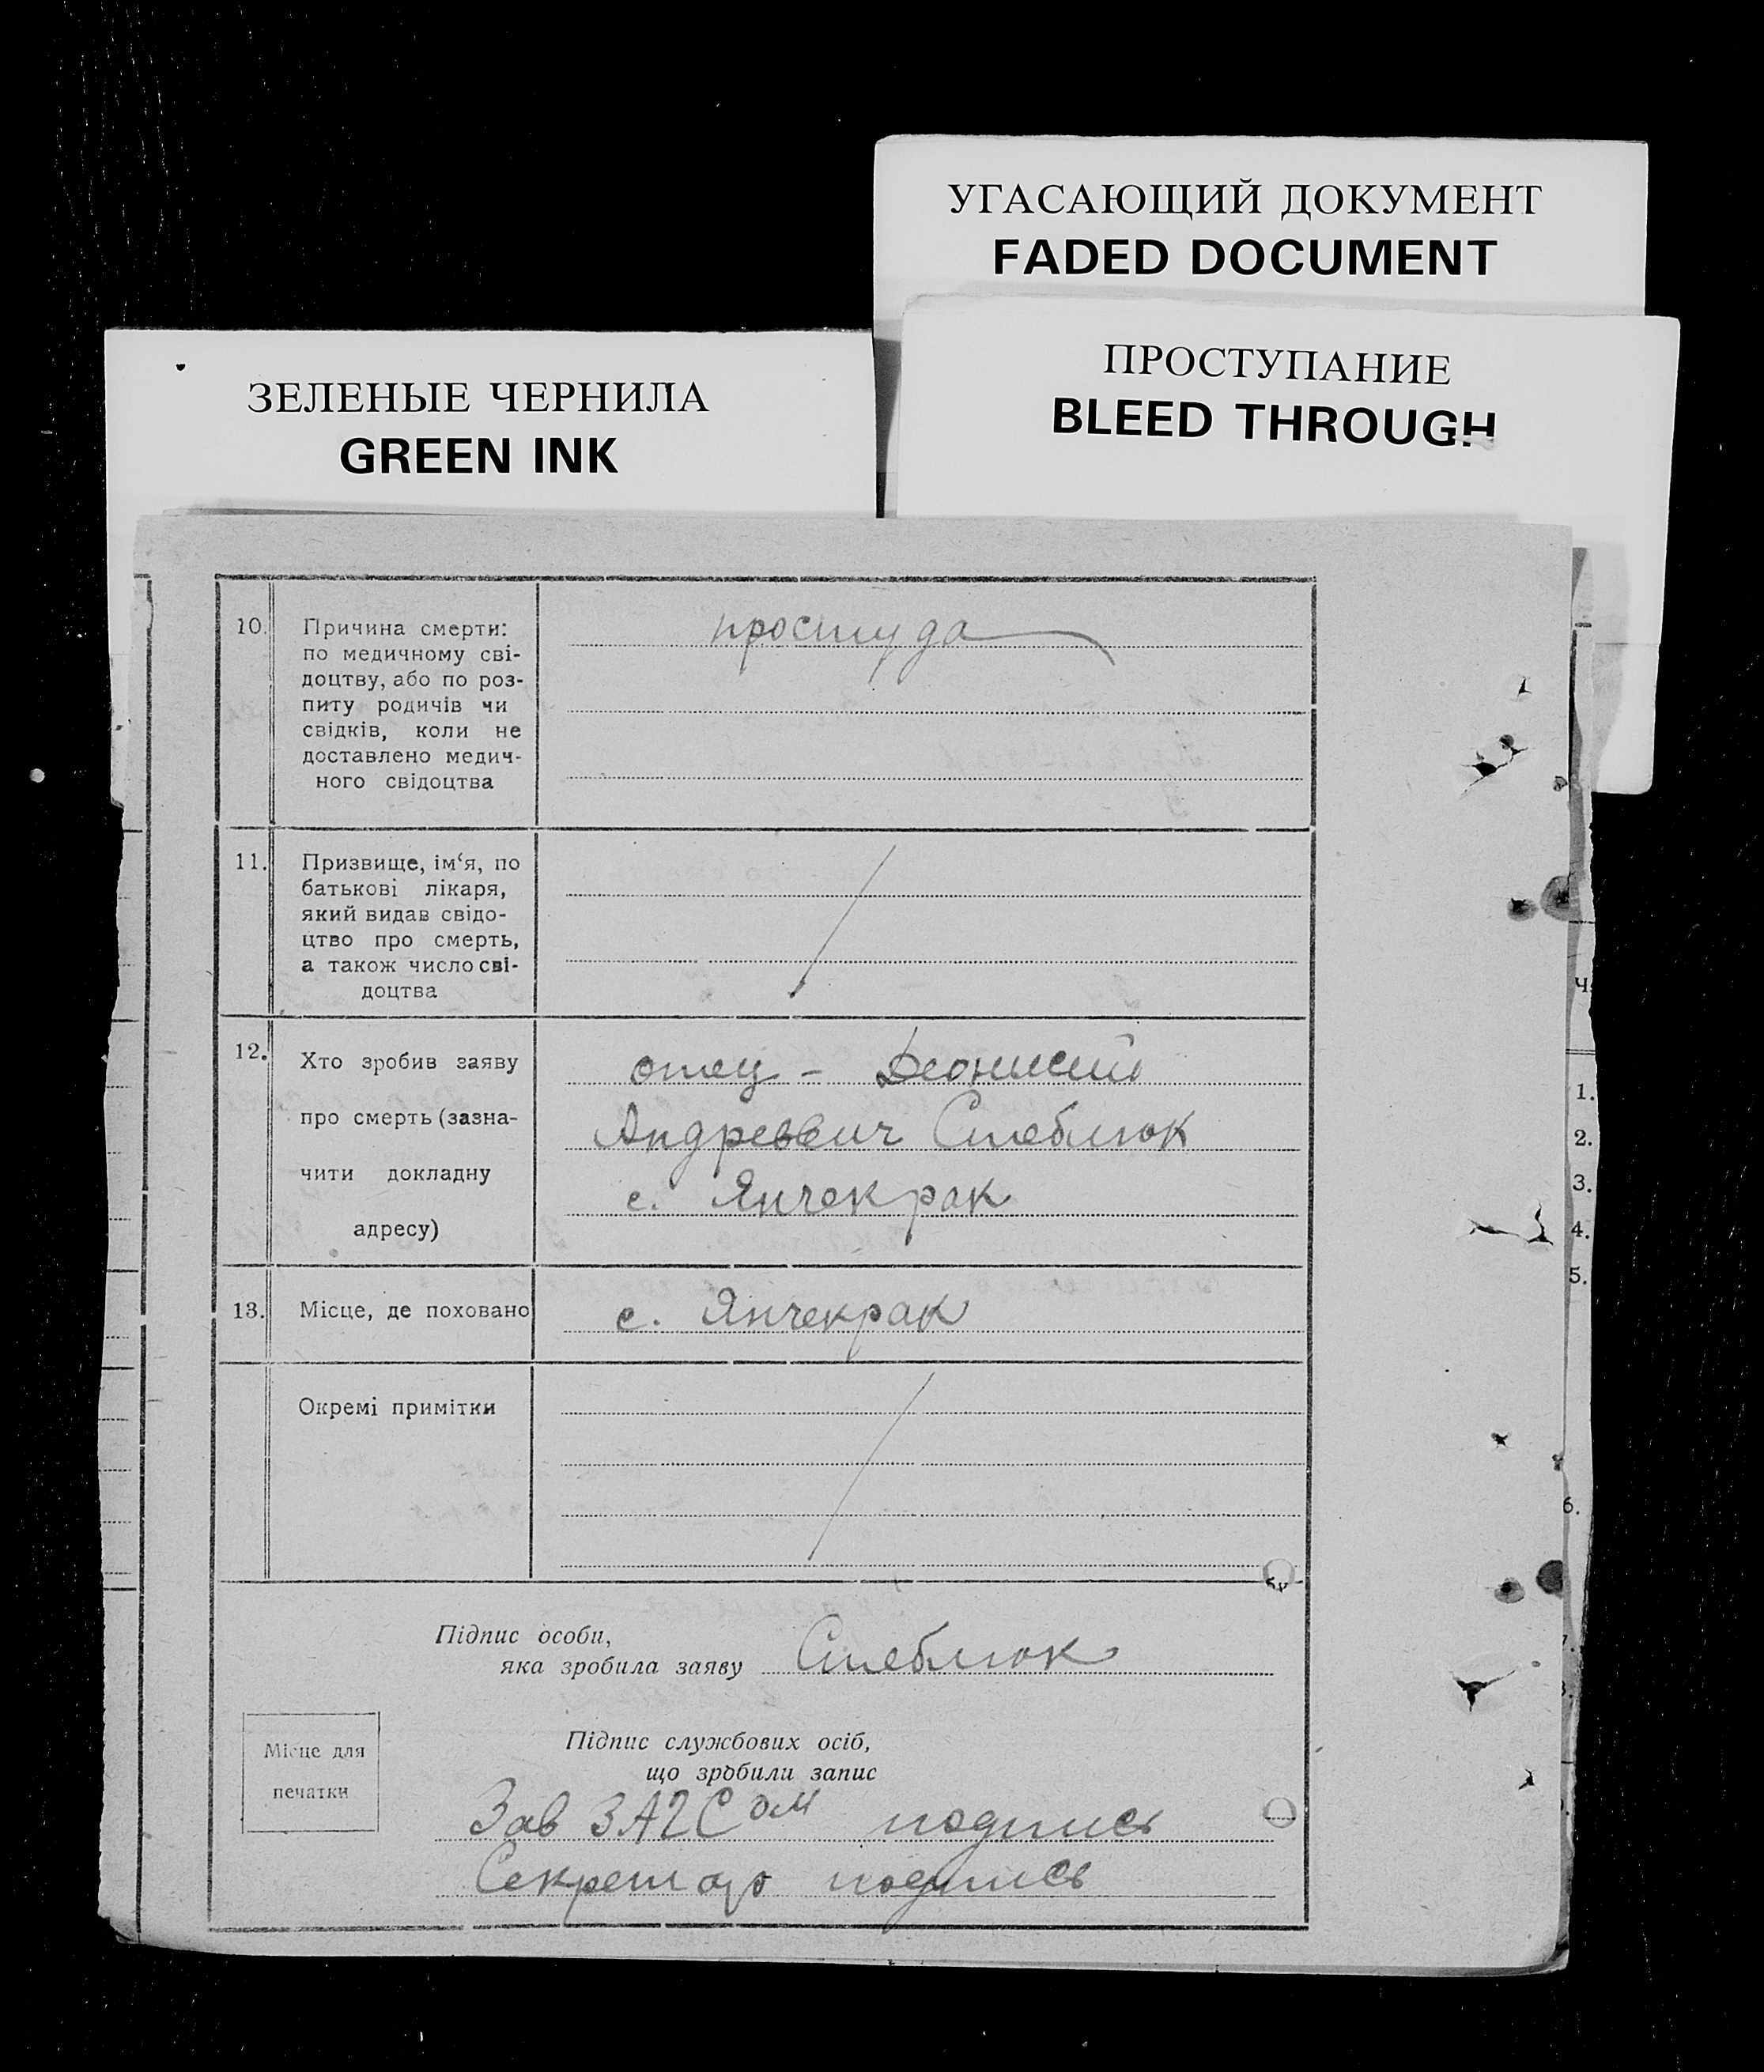 УГАСАЮЩИЙ ДОКУМЕНТ
FADED DOCUMENT
ПРОСТУПАНИЕ
BLEED THROUGH
ЗЕЛЕНЫЕ ЧЕРНИЛА
GREEN INK
10. Причина смерти:
по медичному сві-
доцтву, або по роз-
питу родичів чи
свідків, коли не
доставлено медич-
ного свідоцтва
простуда
11. Призвище, ім‘я, по
батькові лікаря,
який видав свідо-
цтво про смерть,
а також число сві-
доцтва
12. Хто зробив заяву
про смерть (зазна-
чити докладну
адресу)
отец - Деонисий
Андреевич Стеблюк
с. Янчекрак
13. Місце, де поховано
с. Янчекрак
Окремі примітки
Підпис особи,
яка зробила заяву Стеблюк
Місце для
печатки
Підпис службових осіб,
що зробили запис
Зав ЗАГСом подпись
Секретарь подпись
ч
1.
2.
3.
4.
5.
6.
7.